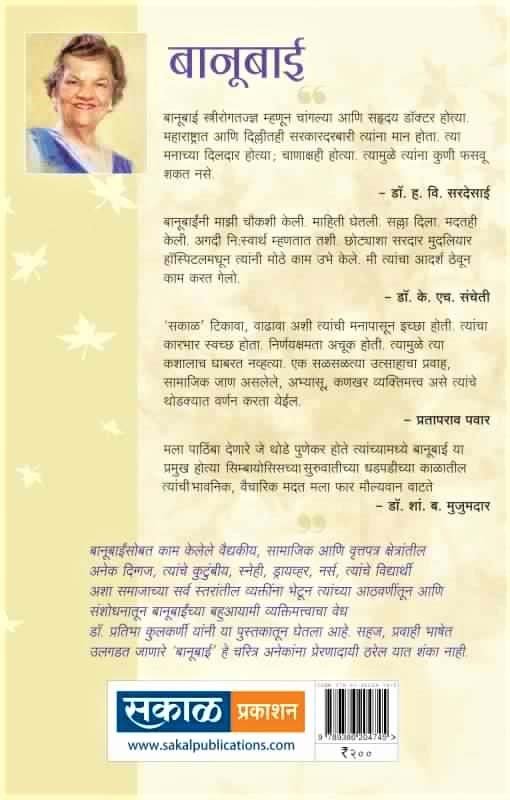 बानूबाई
बानूबाई स्त्रीरोगतज्ज्ञ म्हणून चांगल्या आणि सहृदय डॉक्टर होत्या.
महाराष्ट्रात आणि दिल्लीतही सरकारदरबारी त्यांना मान होता. त्या
मनाच्या दिलदार होत्या; चाणाक्षही होत्या. त्यामुळे त्यांना कुणी फसवू
शकत नसे.
– डॉ. ह. वि. सरदेसाई
बानूबाईंनी माझी चौकशी केली. माहिती घेतली. सल्ला दिला. मदतही
केली. अगदी नि:स्वार्थ म्हणतात तशी. छोट्याशा सरदार मुदलियार
हॉस्पिटलमधून त्यांनी मोठे काम उभे केले. मी त्यांचा आदर्श ठेवून
काम करत गेलो.
– डॉ. के. एच. संचेती
'सकाळ' टिकावा, वाढावा अशी त्यांची मनापासून इच्छा होती. त्यांचा
कारभार स्वच्छ होता. निर्णयक्षमता अचूक होती. त्यामुळे त्या
कशालाच घाबरत नव्हत्या. एक सळसळत्या उत्साहाचा प्रवाह,
सामाजिक जाण असलेले, अभ्यासू, कणखर व्यक्तिमत्त्व असे त्यांचे
थोडक्यात वर्णन करता येईल.
– प्रतापराव पवार
मला पाठिंबा देणारे जे थोडे पुणेकर होते त्यांच्यामध्ये बानूबाई या
प्रमुख होत्या सिम्बायोसिसच्या सुरुवातीच्या धडपडीच्या काळातील
त्यांची भावनिक, वैचारिक मदत मला फार मौल्यवान वाटते
– डॉ. शां. ब. मुजुमदार
बानूबाईंसोबत काम केलेले वैद्यकीय, सामाजिक आणि वृत्तपत्र क्षेत्रांतील
अनेक दिग्गज, त्यांचे कुटुंबीय, स्नेही, ड्रायव्हर, नर्स, त्यांचे विद्यार्थी
अशा समाजाच्या सर्व स्तरांतील व्यक्तींना भेटून त्यांच्या आठवणींतून आणि
संशोधनातून बानूबाईंच्या बहुआयामी व्यक्तिमत्त्वाचा वेध
डॉ. प्रतिभा कुलकर्णी यांनी या पुस्तकातून घेतला आहे. सहज, प्रवाही भाषेत
उलगडत जाणारे 'बानूबाई' हे चरित्र अनेकांना प्रेरणादायी ठरेल यात शंका नाही.
सकाळ प्रकाशन
www.sakalpublications.com
9789386204745
₹२००